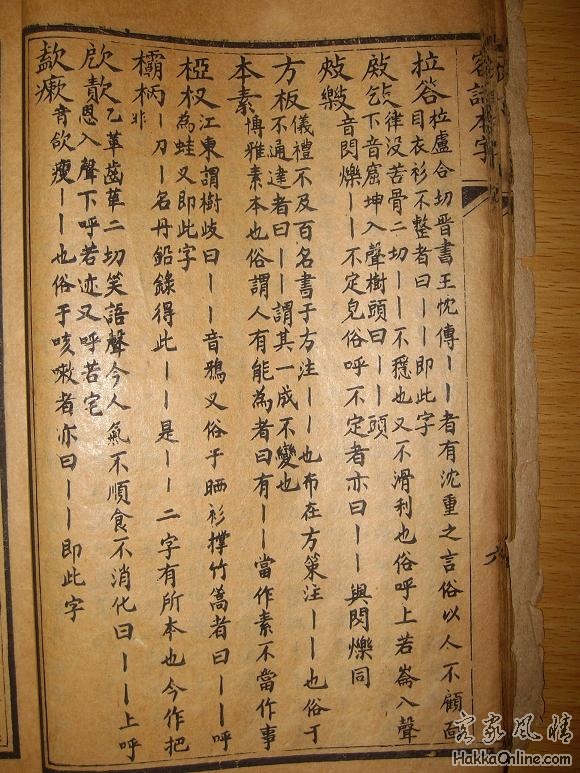 客話本字
拉答 拉盧合切晋書王忱傳丨丨者有沈重之言俗以人不顧面
目衣衫不整者曰丨丨即此字
律没苦骨二切丨丨不穩也又不滑利也俗呼上若崙入聲
下音窟坤入聲樹頭曰丨丨頭
音閃爍丨丨不定皃俗呼不定者亦曰丨丨與閃爍同
方板 儀禮不及百名書于方注丨丨也布在方策注丨丨也俗丁
不通達者曰丨丨謂其一成不變也
本素 博雅素本也俗謂人有能為者曰有丨丨當作素不當作事
椏杈 江東謂樹歧曰丨丨音鴉叉俗于晒衫撐竹篙者曰丨丨呼
為蛙叉即此字
欛柄 丨刀丨名丹鉛錄得此丨丨是丨丨二字有所本也今作把
非
乙革齒草二切笑語聲今人氣不順食不消化曰丨丨上呼
恩入聲下呼若迹又呼若宅
音欲瘦丨丨也俗于咳嗽者亦曰丨丨即此字
客家風情
HakkaOnline.com